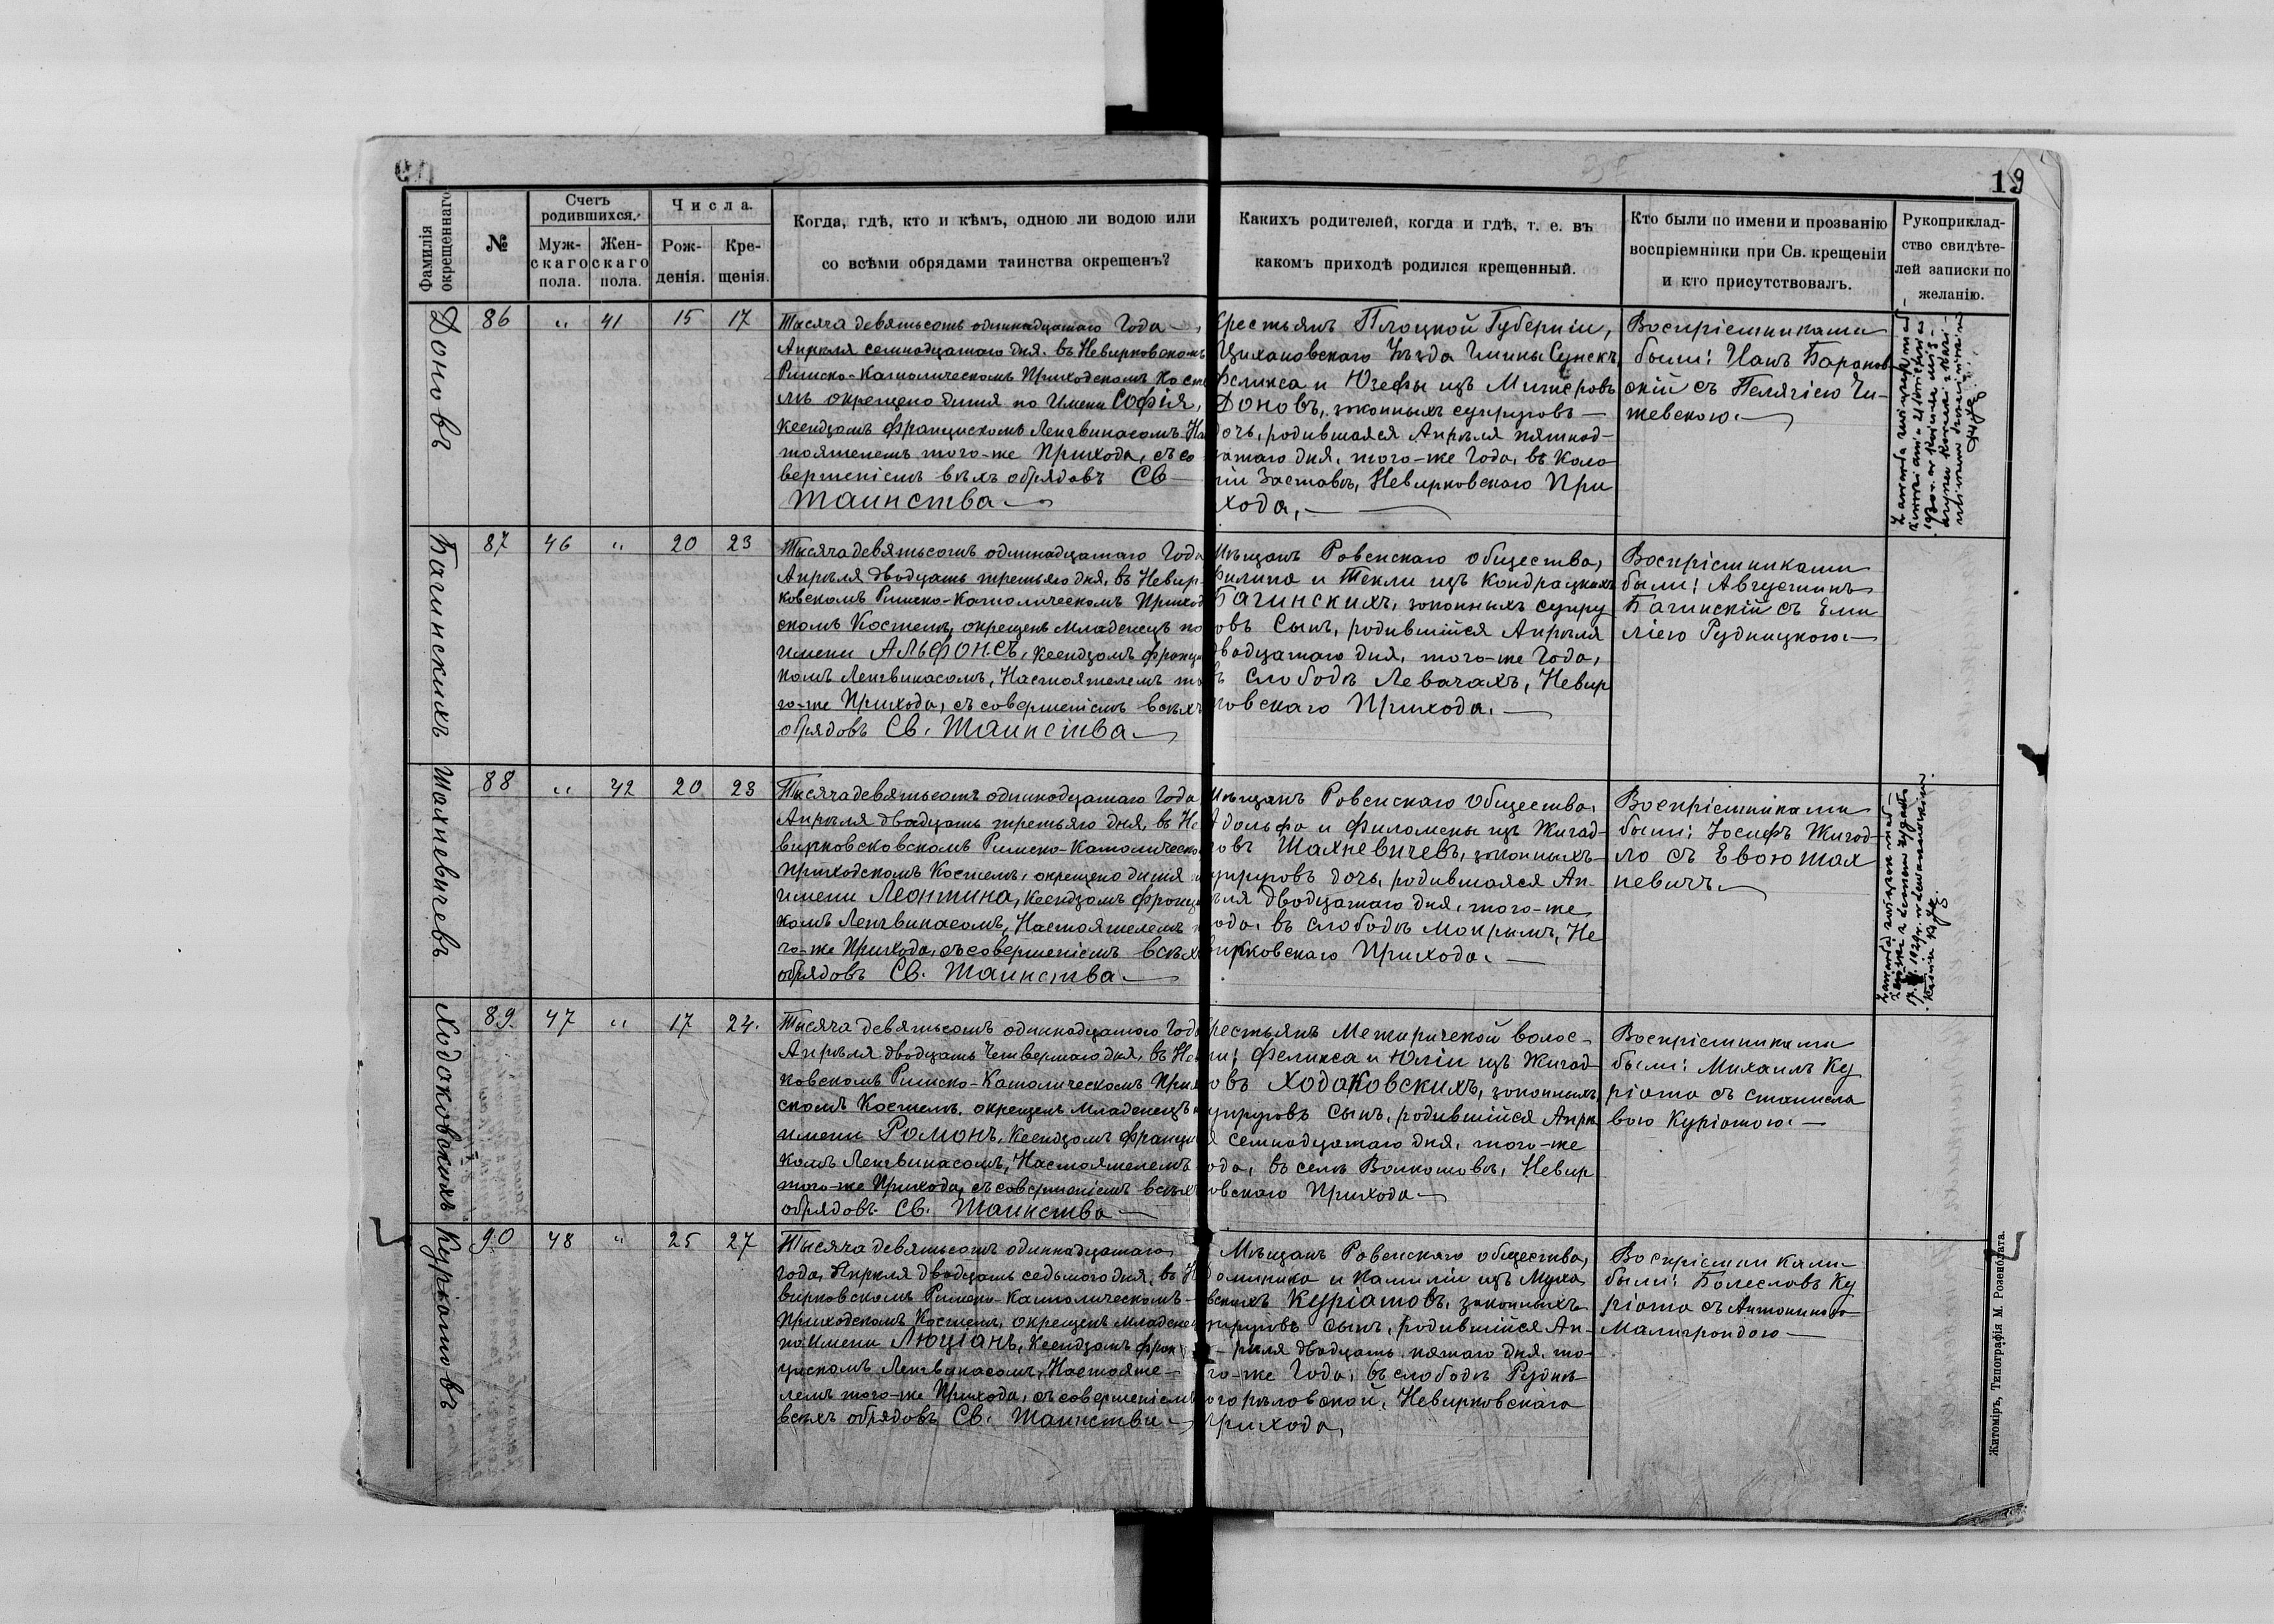 19
Фамилія окрещеннаго.
№
Счетъ родившихся.
Муж-скаго пола.
Жен-скаго пола.
Числа.
Рож-денія.
Кре-щенія.
Когда, гдѣ, кто и кѣмъ, одною ли водою или
со всѣми обрядами таинства окрещенъ?
Какихъ родителей, когда и гдѣ, т. е. въ
какомъ приходѣ родился крещенный.
Кто были по имени и прозванію
воспріемники при Св. крещеніи
и кто присутствовалъ.
Рукоприклад-
ство свидѣте-
лей записки по
желанію.
Доновъ
86 " 41 15 17
Тысяча девятьсотъ одиннадцатаго Года—,
Апрѣля семнадцатаго дня. въ Невирковскомъ
Римско-Католическомъ Приходскомъ Косте
лѣ окрещено дитя по Имени София,
Ксендзомъ Францискомъ Ленгвинасомъ На
стоятелемъ того-же Прихода, съ со
вершеніемъ всѣхъ обрядовъ Св—
Таинства—
Крестьянъ Плоцкой Губерніи,
Цихановскаго Уѣзда Гмины Сунскъ,
Феликса и Юзефы изъ Мигиеровъ
Доновъ, законныхъ супруговъ—
дочь, родившаяся Апрѣля пятнад-
цатаго дня, того-же Года, въ Коло
ніи Заставѣ, Невирковскаго При
хода,—
Воспріемниками
были: Ианъ Баранов
скій съ Пелягіею Чи-
жевскою.—
Багинскихъ
87 46 " 20 23
Тысяча девятьсотъ одиннадцатаго Года
Апрѣля двадцать третьяго дня, въ Невир-
ковскомъ Римско-Католическомъ Приход
скомъ Костелѣ, окрещенъ Младенецъ по
имени Альфонсъ, Ксендзомъ Францис
комъ Ленгвинасомъ, Настоятелемъ то
го-же Прихода, съ совершеніемъ всѣхъ
обрядовъ Св. Таинства—
Мѣщанъ Ровенскаго общества,
Филипа и Текли изъ Кондрацкихъ
Багинскихъ, законныхъ супру
говъ Сынъ, родившійся Апрѣля
двадцатаго дня, того-же Года,
въ слободѣ Левачахъ, Невир
ковскаго Прихода.—
Воспріемниками
были: Августинъ
Багинскій съ Еми
ліею Рудницкою.—
Шахневичевъ
88 " 42 20 23
Тысяча девятьсотъ одиннадцатаго Года
Апрѣля двадцать третьяго дня, въ Не
вирковсковскомъ Римско-Католическомъ
Приходскомъ Костелѣ, окрещено дитя по
имени Леонтина, Ксендзомъ Францис
комъ Ленгвинасомъ, Настоятелемъ то
го-же Прихода, съ совершеніемъ всѣхъ
обрядовъ Св. Таинства—
Мѣщанъ Ровенскаго Общества,
Адольфа и Филомены изъ Жигад-
ловъ Шахневичевъ, законныхъ
супруговъ дочь, родившаяся Ап-
рѣля двадцатаго дня, того-же
Года, въ слободѣ Мокрымъ, Не
вирковскаго Прихода.—
Воспріемниками
были: Іосифъ Жигад-
ло съ Евою Шах
невичъ.—
Ходаковскихъ
89. 47 " 17 24.
Тысяча девятьсотъ одиннадцатаго Года
Апрѣля двадцать Четвертаго дня, въ Невир
ковскомъ Римско-Католическомъ Приход
скомъ Костелѣ, окрещенъ Младенецъ по
имени Романъ, Ксендзомъ Францис
комъ Ленгвинасомъ, Настоятелемъ
того-же Прихода, съ совершеніемъ всѣхъ
обрядовъ Св. Таинства—
Крестьянъ Межиричской волос-
ти; Феликса и Юліи изъ Жигад
ловъ Ходаковскихъ, законныхъ
супруговъ Сынъ, родившійся Апрѣ
ля семнадцатаго дня, того-же
Года, въ селѣ Волкошовѣ, Невир
ковскаго Прихода—
Воспріемниками
были: Михаилъ Ку
ріата съ Станисла
вою Куріатою.—
Куріатовъ
90 48 " 25 27
Тысяча девятьсотъ одиннадцатаго
Года, Апрѣля двадцать седьмого дня, въ Не
вирковскомъ Римско-Католическомъ—
Приходскомъ Костелѣ, окрещенъ Младенецъ
по Имени Люціанъ, Ксендзомъ Фран
цискомъ Ленгвинасомъ, Настояте-
лемъ того-же Прихода, съ совершеніемъ
всѣхъ обрядовъ Св. Таинства—
Мѣщанъ Ровенскаго общества,
Доминика и Камиліи изъ Муха
вскихъ Куріатовъ, законныхъ
супруговъ сынъ, родившійся Ап-
рѣля двадцать пятаго дня, то-
го-же Года, въ слободѣ Рудни
Погорѣловской, Невирковскаго
Прихода,
Воспріемниками
были: Болеславъ Ку
ріата съ Антониною
Малиграндою—
Житоміръ, Типографія М. Розенблата.